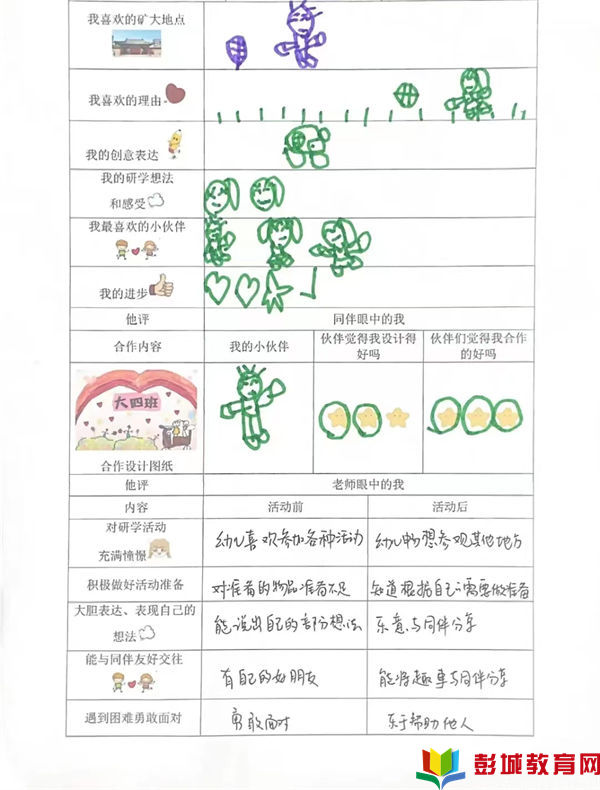 我喜欢的矿大地点
我喜欢的理由
我的创意表达
我的研学想法
和感受
我最喜欢的小伙伴
我的进步
他评 同伴眼中的我
合作内容 我的小伙伴 伙伴觉得我设计得好吗 伙伴们觉得我合作的好吗
大四班
合作设计图纸
他评 老师眼中的我
内容 活动前 活动后
对研学活动
充满憧憬 幼儿喜欢参加各种活动 幼儿畅想参观其他地方
积极做好活动准备 对准备的物品准备不足 知道根据自己需要做准备
大胆表达、表现自己的
想法 能说出自己的部分想法 乐意与同伴分享
能与同伴友好交往 有自己的好朋友 能将趣事与同伴分享
遇到困难勇敢面对 勇敢面对 乐于帮助他人
彭城教育网